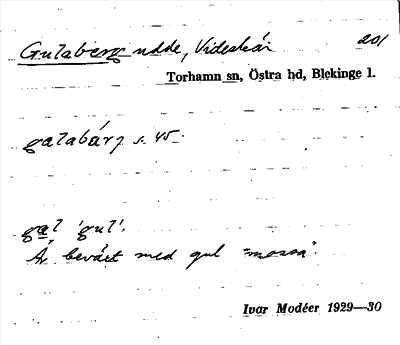 Gulaberg udde, Videskär 201
Torhamn sn, Östra hd, Blekinge l.
galabárj s. 45.
gal 'gul'.
Är beväxt med gul "mossa".
Ivar Modéer 1929—30